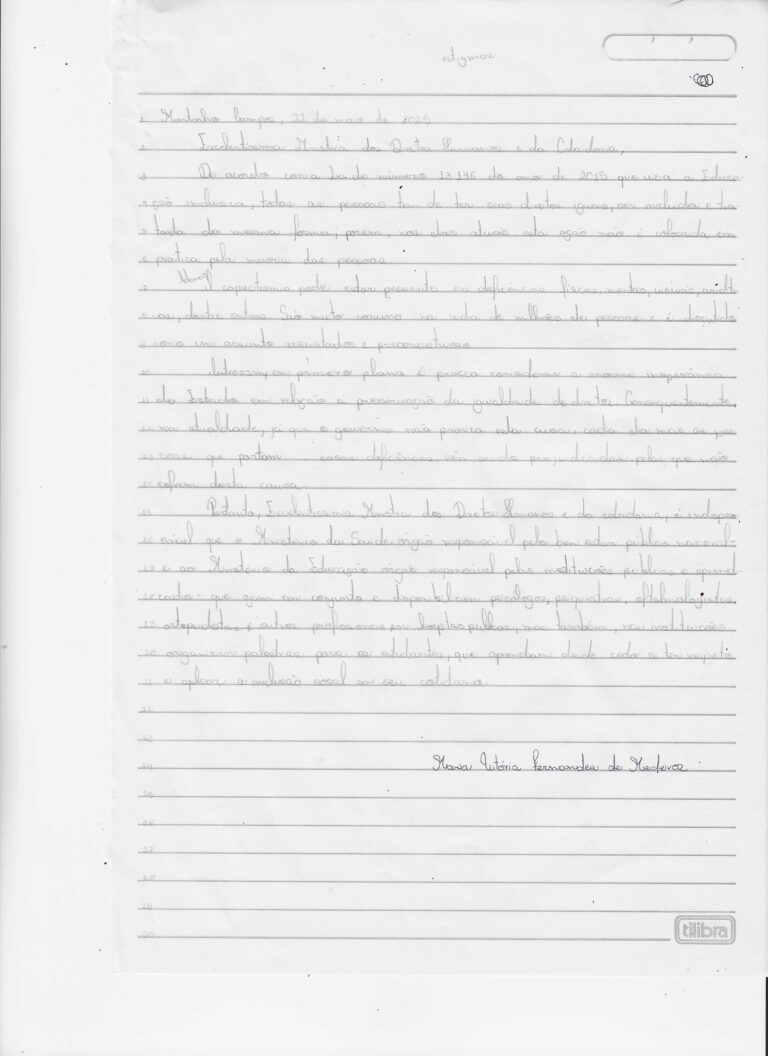 Marechal Campos, 22 de maio de 2025
Excelentissima Ministra dos Direitos Humanos e da Cidadania,
De acordo com a Lei de número 13.146 do ano de 2015 que visa a Educa
ção inclusiva, todas as pessoas tem de ter seus direitos iguais, ser incluida e tra
tada da mesma forma, porém, nos dias atuais esta ação não é colocada em
prática pela maioria das pessoas.
O capacitismo pode estar presente em deficiências físicas, mentais, visivas, auditi
vas, dentre outras. São muito comuns na vida de milhões de pessoas e é discutida
como um assunto assustador e preconceituoso
Outrossim, em primeiro plano é preciso considerar a enorme inoperância
do Estado em relação a preservação da igualdade de direitos. Consequentemente,
na atualidade, já que o governo não prioriza esta causa, cada dia mais as pes
soas que portam essas deficiências, vem sendo prejudicadas pelos que não
sofrem desta causa
Portanto, Excelentissima Ministra dos Direitos Humanos e da cidadania, é indispen
sável que o Ministério da Saúde-órgão responsável pelo bem estar público nacional-
e ao Ministério da Educação-órgão responsável pelas instituições públicas e aprend
izados- que ajam em conjunto e disponibilizem psicólogos, psiquiatras, oftalmologistas,
ortopedistas e outros profissionais em hospitais públicos, mas também, nas instituições
organizem palestras para os estudantes, que aprendam desde cedo a ter respeito
e aplicar a inclusão social em seu cotidiano.
Maria Vitória Fernandes de Medeiros
tilibra